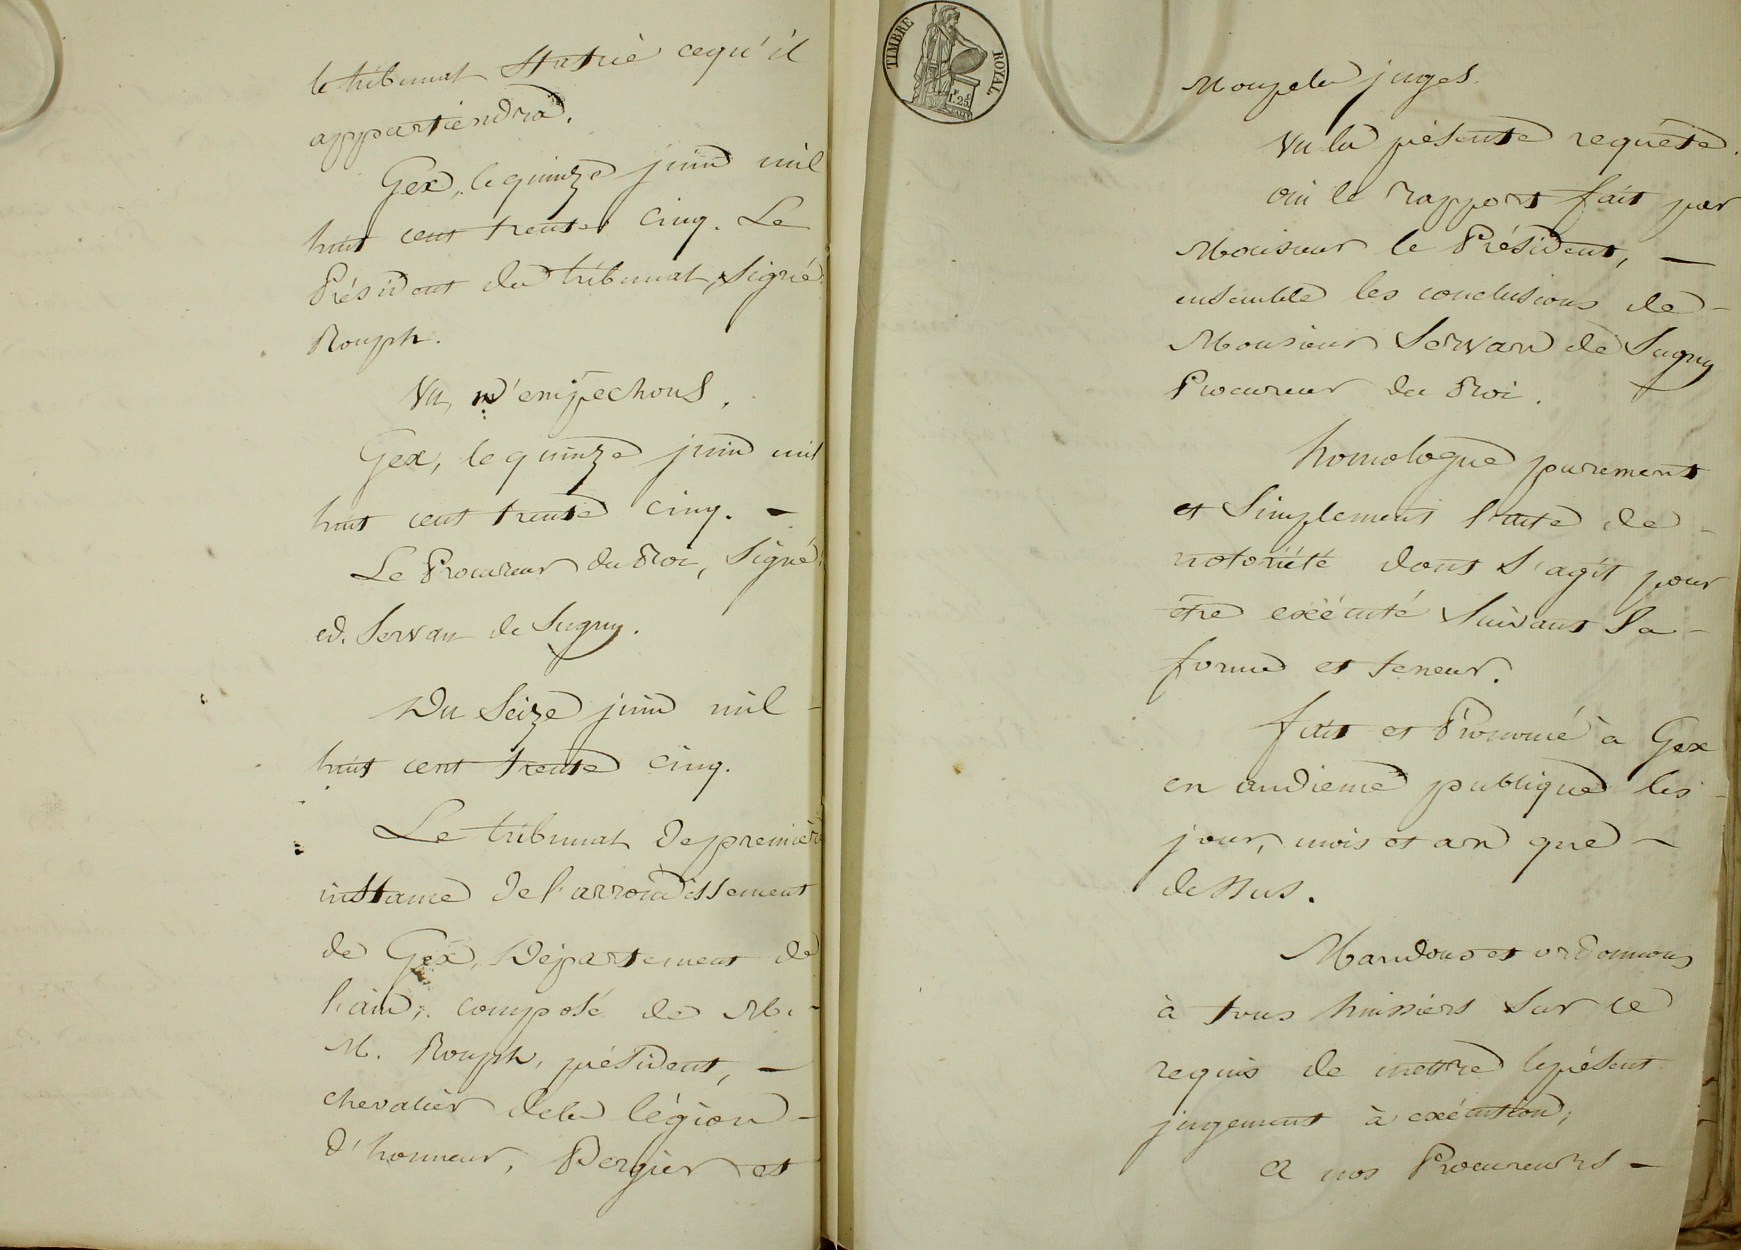 le tribunal statué ce qu'il
appartiendra.
Gex, le quinze juin mil
huit cent trente cinq. Le
Président du tribunal, signé
Rouph.
Vu, n'empêchons.
Gex, le quinze juin mil
huit cent trente cinq. -
Le Procureur du Roi, Signé
ed. Servan de Sugny.
Du Seize juin mil -
huit cent trente cinq.
Le tribunal de première
instance de l'arrondissement
de Gex, Département de
l'ain, composé de M. -
M. Rouph, président, -
chevalier de la légion -
d'honneur, Pergier et
TIMBRE ROYAL.
1.25
juges.
Vu la présente requête.
oui le rapport fait par
Monsieur le Président, -
ensemble les conclusions de -
Monsieur Servan de Sugny
Procureur du Roi.
homologue purement
et Simplement l'acte de -
notoriété dont s'agit pour
être exécuté suivant sa -
forme et teneur.
fait et Prononcé à Gex
en audience publique les -
jour, mois et an que -
dessus.
Mandons et ordonnons
à tous huissiers sur ce
requis de mettre le présent
jugement à exécution;
a nos Procureurs -